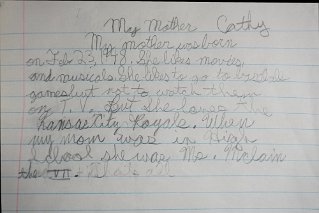 My Mother Cathy
My mother was born
on Feb 23, 1948. She likes movies,
and musicals. She likes to go to baseball
games but not to watch them
on T.V. But she loves the
Kansas City Royals. When
my mom was in High
School she was Ms. McLain
the